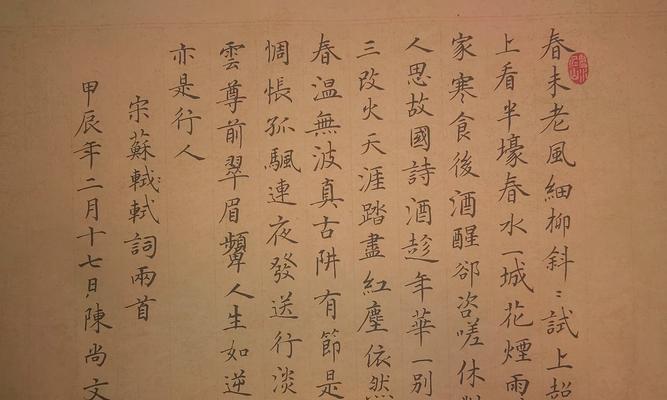 春未老風細柳斜〻試上超
上看半壕春水一城花煙雨
家寒食後酒醒卻咨嗟休對
人思故國詩酒趁年華一別
三改火天涯踏盡紅塵依然
春温無波真古阱有節是
惆悵孤颿連夜發送行淡
雲尊前翠眉顰人生如逆
亦是行人
宋蘇軾軾詞兩首
甲辰年二月十七日陳尚文